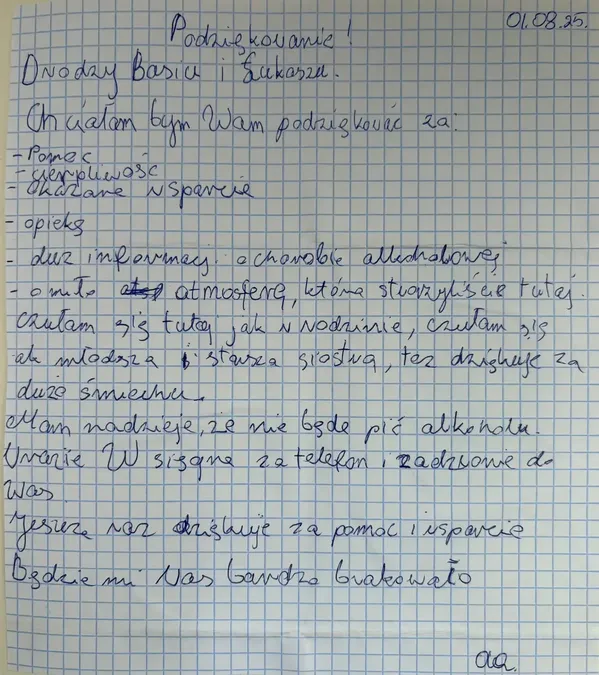 01.08.25.
Podziękowanie!
Drodzy Basiu i Łukaszu.
Chciałam bym Wam podziękować za:
- Pomoc
- cierpliwość
- okazane wsparcie
- opiekę
- duż informacji o chorobie alkoholowej
- o miło atmosferę, która stworzyliście tutaj.
czułam się tutaj jak w rodzinie, czułam się
ak młodsza i starsza siostra, też dziękuje za
duże śmiechu.
Mam nadzieje, że nie będe pić alkoholu.
W sięgne za telefon i zadzwonie do
Was
Jeszcze raz dziękuje za pomoc i wsparcie
Będzie mi Was bardzo brakowało